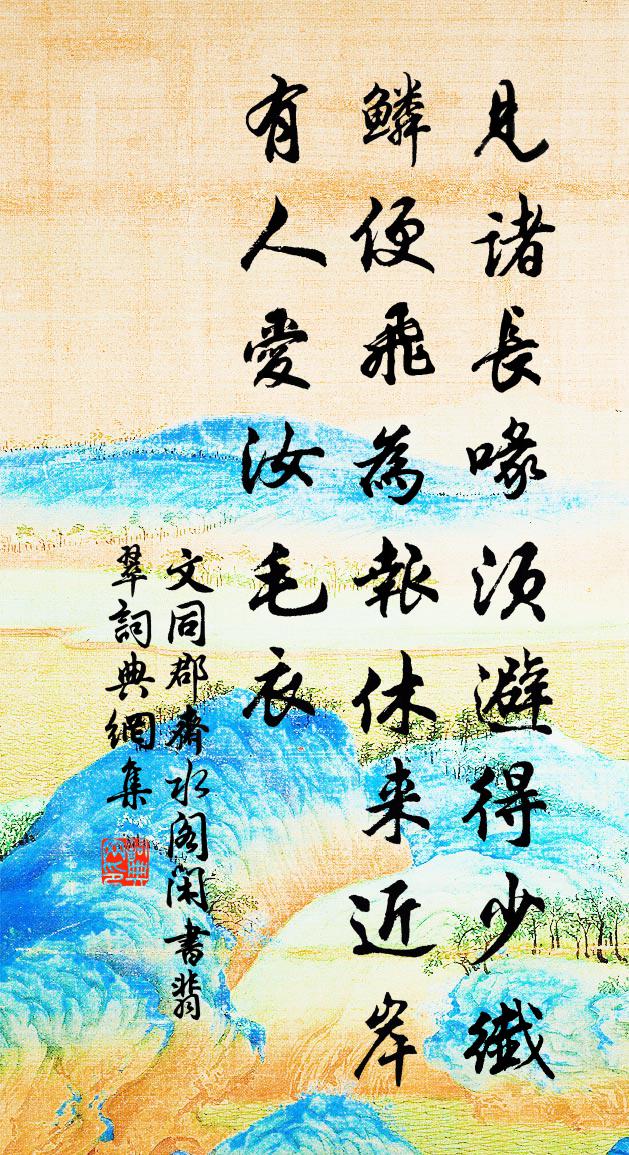 見諸長喙須避得少纖
鱗便飛為報休来近岸
有人愛汝毛衣
文同郡齋水阁闲書翡
翠詞典網集